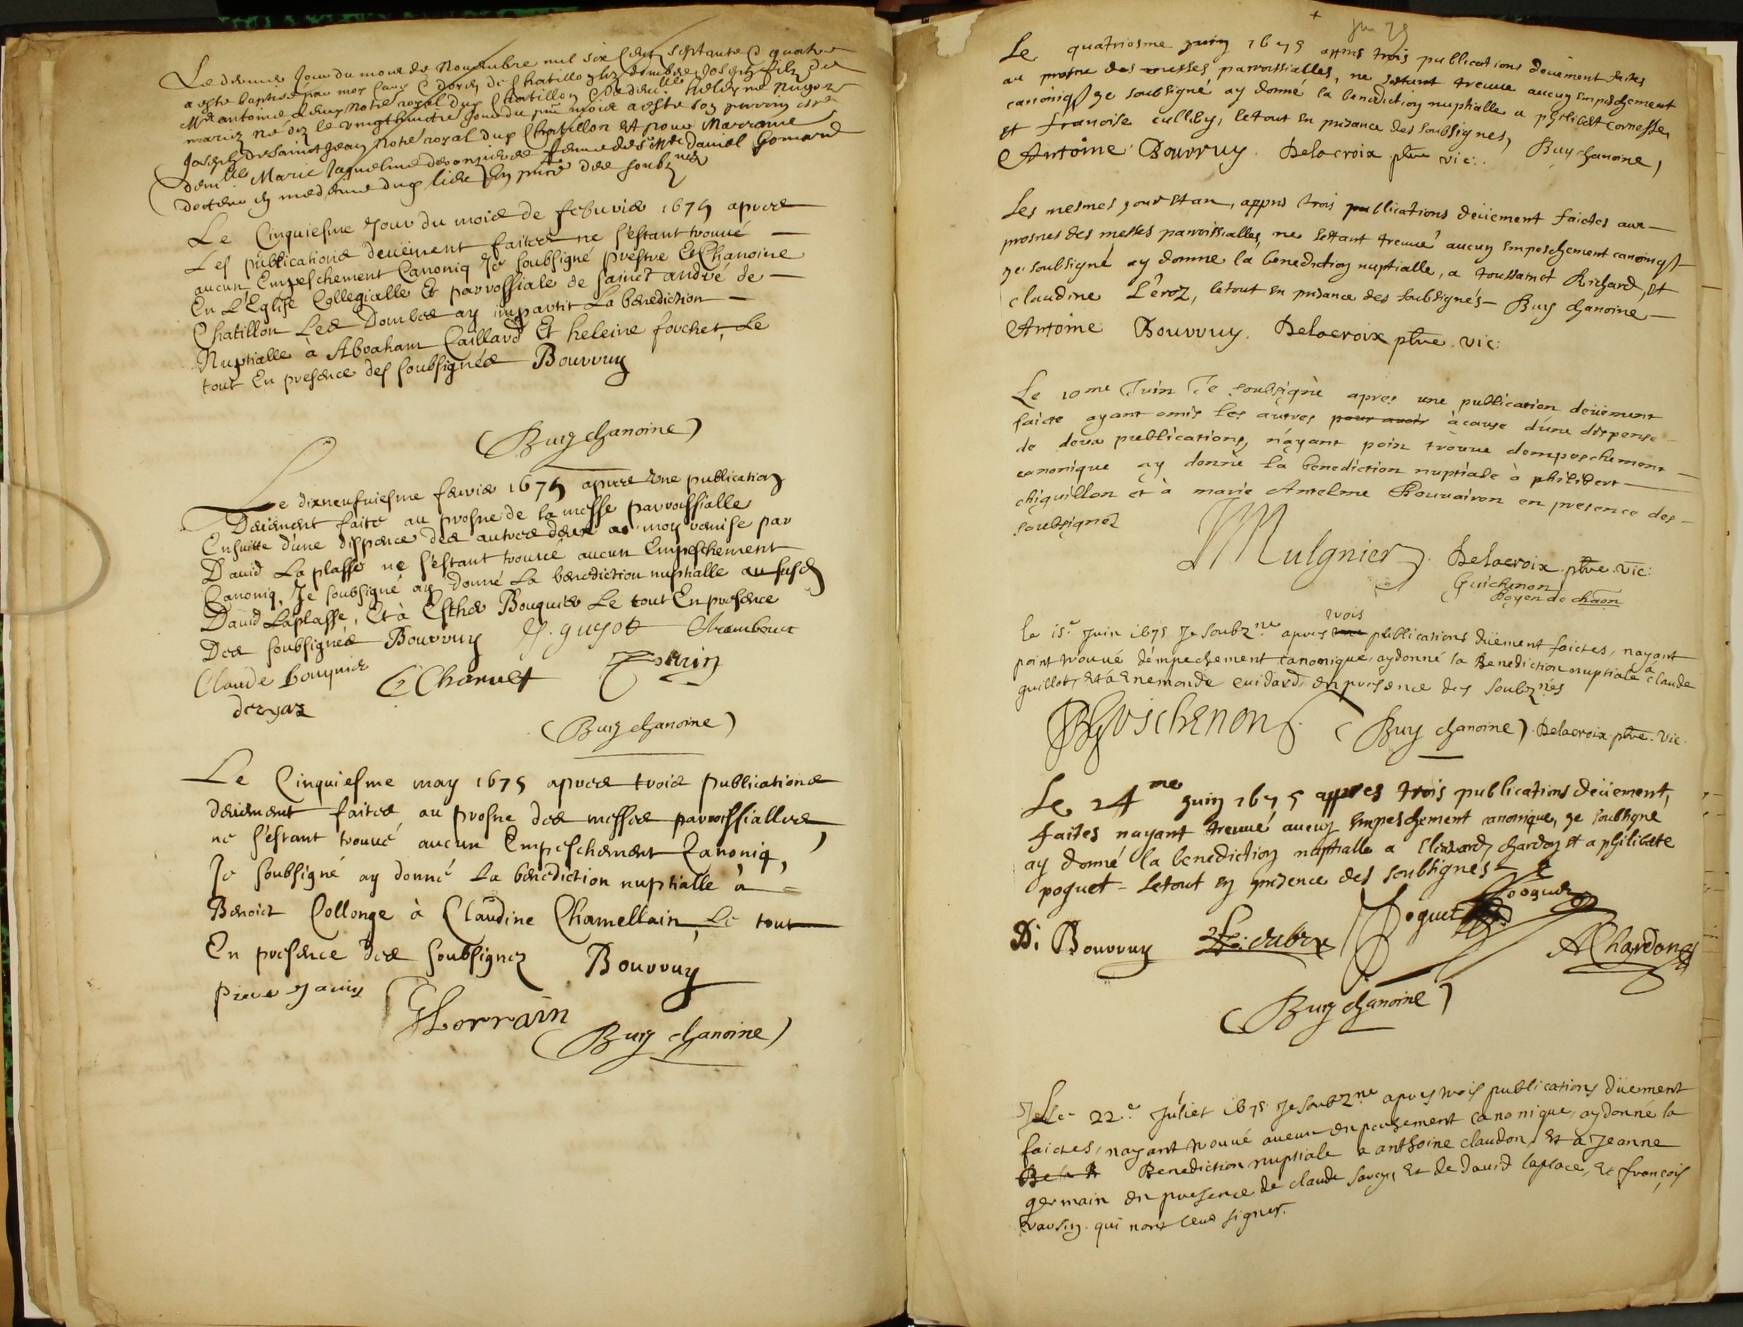 Le dernier Jour du mois de Novembre mil six Cent septante & quatre
a este baptisé par moy Curé de Chatillon les dombes Joseph filz de
Me antoine notre royal dud Chatillon & de dlle
mariez né le vingthuictre Jour du pnt mois a esté son parrin
Joseph De Sainct Jean Notre royal dud Chatillon Et pour Marraine
demlle Marie Jaqueline femme de Mre daniel Gomard
docteur en medecine dud lieu En pnce des soubznez
Le Cinquiesme Jour du mois de febvrier 1675 apres
Les publications deuëment faites ne s'estant trouvé
aucun Empeschement Canoniq Je soubsigné prestre Et Chanoine
En L'Eglise Collegialle Et parrossiale de sainct andré de
Chatillon Les Dombes ay impartit La benediction
Nuptialle à Abraham Caillard Et heleine fouchet, Le
tout En presence des soubsignés Bourruy
Buy chanoine
Le dixneufuiesme fevrier 1675 apres Une publication
Deüement faite au prosne de la messe parrossialle
Ensuitte d'une dispence des autres deux a moy remise par
David La plasse ne s'estant trouvé aucun Empeschement
Canoniq, Je soubsigné ay donné La benediction nuptialle au susd
David Laplasse, Et à Esther Bouquier Le tout En presence
Des soubsignés Bourruy guyot
Claude bouquier Charvet
Buy chanoine
Le Cinquiesme may 1675 apres trois publications
deüement faites au prosne des messes parrossialles,
ne s'estant trouvé aucun Empeschement Canoniq,
Je soubsigné ay donné La benediction nuptialle à
Benoict Collonge à Claudine Chamellain, Le tout
En presence des soubsignez Bourruy
Lorrain
Buy chanoine
Le quatriesme juin 1675 appres trois publications deuement faites
au prosne des messes parroissialles, ne sestant treuvé aucun empeschement
canoniq je soubsigné ay donné la benediction nuptialle a philibert Cornesse,
et françoise cullery, le tout en presance des soubsignes, Buy chanoine,
Antoine Bourruy. Delacroix ptre vic.
Les mesmes jour et an, appres trois publications deüement faictes aux
prosnes des messes parroissialles, ne sestant treuvé aucun empeschement canoniq
je soubsigné ay donné la benediction nuptialle, a toussainct Richard, et
claudine L'éroz, le tout en presance des soubsignés Buy chanoine
Antoine Bourruy. Delacroix ptre. vic:
Le 10me Juin Je soubsigné apres une publication deüement
faite ayant omis les autres pour avoir à cause d'une dispense
de deux publications, n'ayant poin trouvé d'empeschement
canonique ay donné la benediction nuptiale à philibert
chiquillon et à marie Anselme Rouvairon en presence des
soubsignez
Mulgnier. Delacroix ptre vic:
Guichenon
Doyen de chaon
le 15e Juin 1675 Je soubzne apres trois publications düement faictes, nayant
point trouvé d'empechement canonique, ay donné la Benediction nuptiale à claude
guillot, Et à Enemonde cuidard, en presence des soubznés
Guichenon. Buy chanoine. Delacroix ptre. vic.
Le 24me juin 1675 appres trois publications deüement,
faites nayant treuvé aucun empeschement canonique, je soubsigné
ay donné la benediction nuptialle a chardon et a philiberte
poguet - le tout en presence des soubsignes
D. Bourruy poguet A Chardon
Buy chanoine
Le 22e Juliet 1675 Je soubzne apres trois publications düement
faictes, nayant trouvé aucun enpechement canonique, ay donné la
Benediction nuptiale a anthoine claudon, Et a Jeanne
germain en presence de claude Et de David laplace, Et françois
qui nont sceu signer.